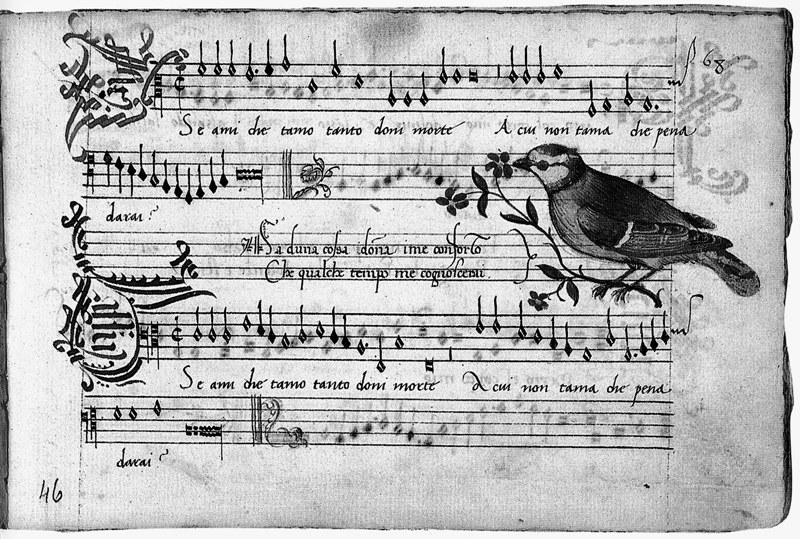 68
Se ami che tamo tanto doni morte A cui non tama che pena
darai?
Ma duna cosa dona ime conforto
Che qualche tempo me
Se ami che tamo tanto doni morte A cui non tama che pena
darai?
46